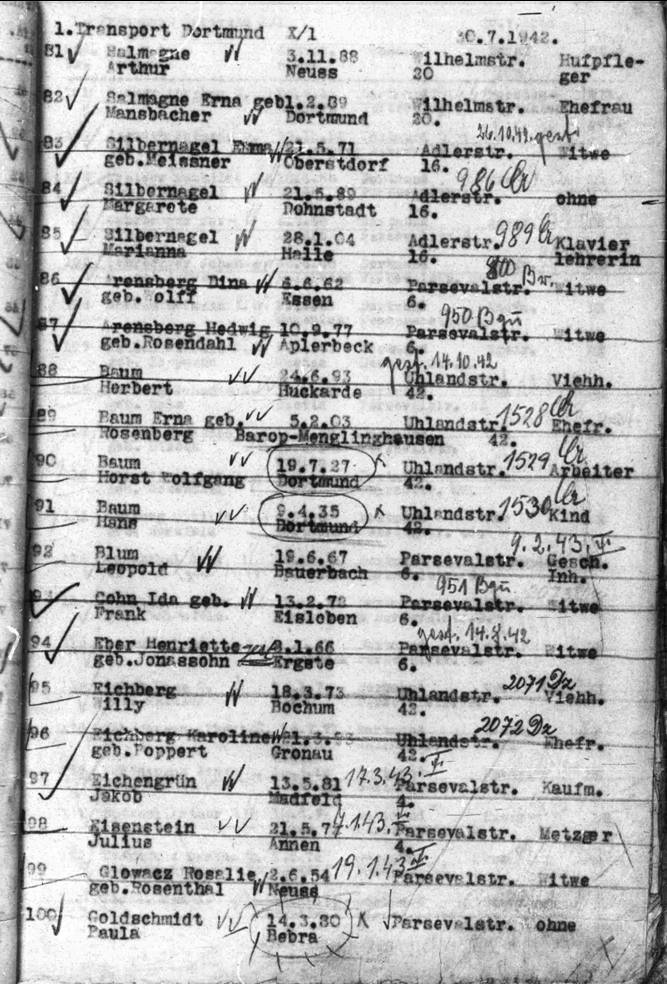 1.Transport Dortmund X/1 30.7.1942.
81 Salmagne 3.11.88 Wilhelmstr. Hufpfle-
Arthur Neuss 20 ger
82 Salmagne Erna geb1.2.89 Wilhelmstr. Ehefrau
Mansbacher Dortmund 20.
26.10.42 gest.
83 Silbernagel Emma 21.5.71 Adlerstr. Witwe
geb.Meissner Oberstdorf 16.
84 Silbernagel 21.5.89 Adlerstr. 986 ohne
Margarete Dohnstadt 16.
85 Silbernagel 28.1.04 Adlerstr. 989 Klavier
Marianna Halle 16. lehrerin
86 Arensberg Dina 6.6.62 Parsevalstr. Witwe
geb.Wolff Essen 6.
950 Bgü
87 Arensberg Hedwig 10.9.77 Parsevalstr. Witwe
geb.Rosendahl Aplerbeck 6.
gest. 14.10.42
88 Baum 24.6.93 Uhlandstr. Viehh.
Herbert Huckarde 42.
89 Baum Erna geb. 5.2.03 Uhlandstr. 1528 Ehefr.
Rosenberg Barop-Menglinghausen 42.
90 Baum 19.7.27 x Uhlandstr. 1529 Arbeiter
Horst Wolfgang Dortmund 42.
91 Baum 9.4.35 x Uhlandstr. 1530 Kind
Hans Dortmund 42.
9.2.43.
92 Blum 19.6.67 Parsevalstr. Gesch.
Leopold Bauerbach 6. Inh.
951 Bgü
93 Cohn Ida geb. 13.2.78 Parsevalstr. Witwe
Frank Eisleben 6.
gest. 14.8.42
94 Eber Henriette 3.1.66 Parsevalstr. Witwe
geb.Jonassohn Ergste 6.
95 Eichberg 18.3.73 Uhlandstr. 2071 Dz Viehh.
Willy Bochum 42.
2072 Dz
96 Eichberg Karoline Uhlandstr. Ehefr.
geb.Poppert Gronau 42.
97 Eichengrün 13.5.81 17.3.43. Parsevalstr. Kaufm.
Jakob Madfeld 4.
98 Eisenstein 21.5.77 Parsevalstr. Metzger
Julius Annen 4.
99 Glowacz Rosalie 2.6.54 19.1.43 Parsevalstr. Witwe
geb.Rosenthal Neuss
100 Goldschmidt 14.3.80 x Parsevalstr. ohne
Paula Bebra